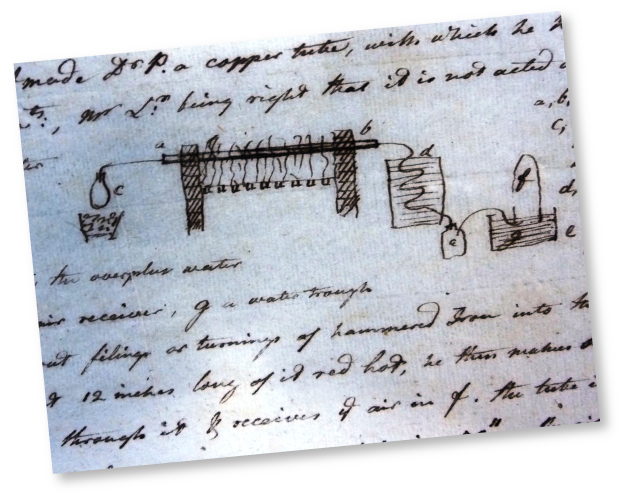 made Dr P. a copper tube, with which he
Mr L.n being right that it is not acted
a, b,
c,
a b
d
c
f
d,
e g e
the overplus water
air receiver, g a water trough
filings or turnings of hammered Iron into
12 inches long of it red hot, he then makes
through it & receives ye air in f. the tube